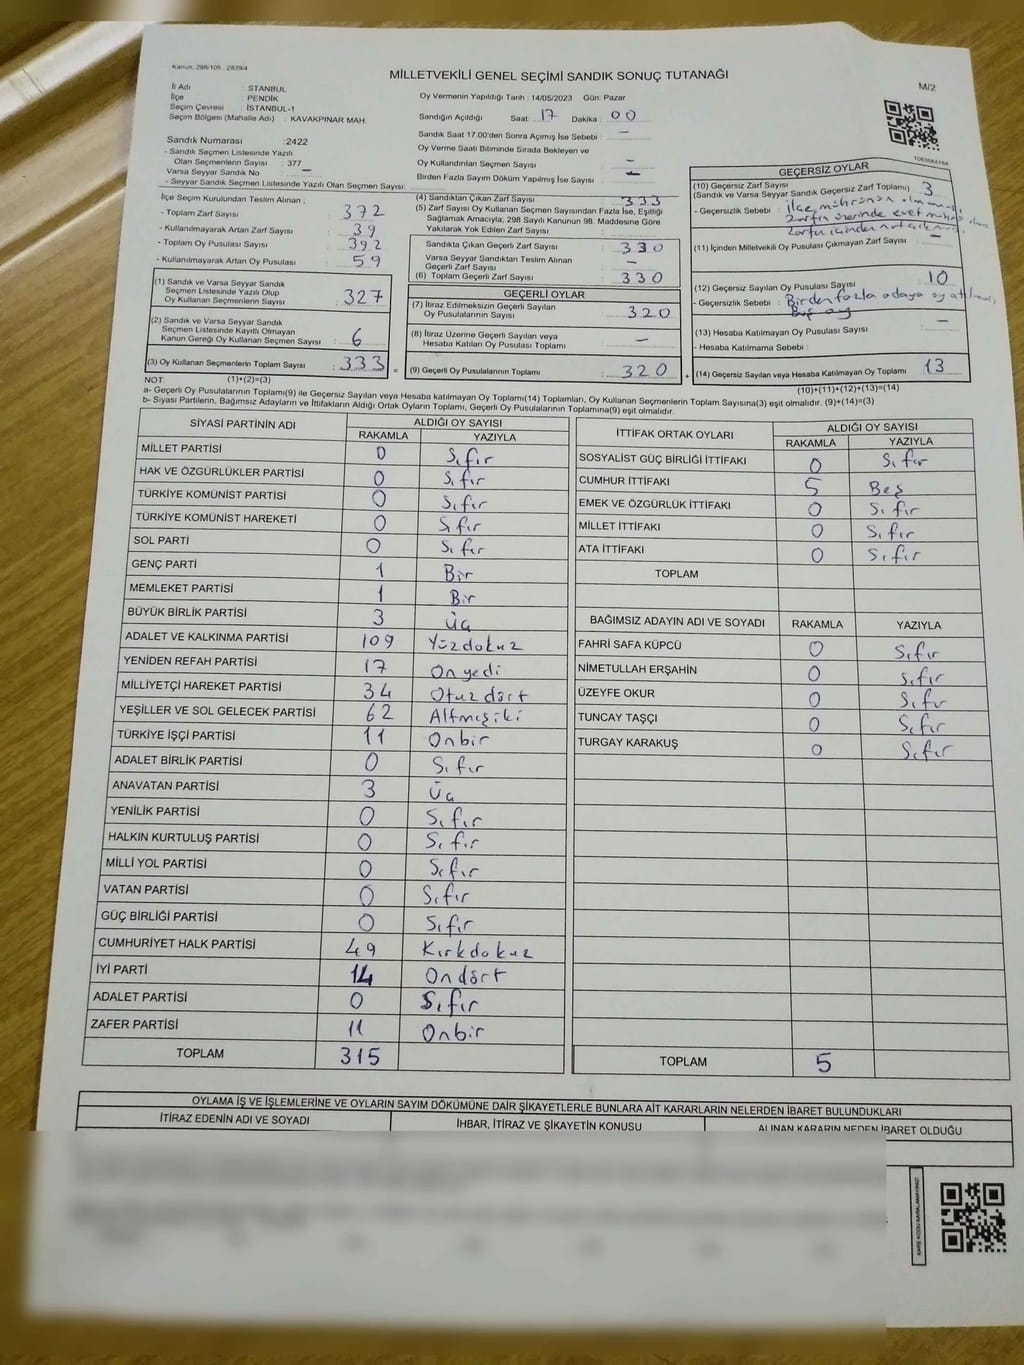 Kanun, 298/105 , 2839/4
MİLLETVEKİLİ GENEL SEÇİMİ SANDIK SONUÇ TUTANAĞI
M/2
İli Adı : STANBUL
İlçe : PENDİK
Seçim Çevresi : İSTANBUL-1
Seçim Bölgesi (Mahalle Adı) : KAVAKPINAR MAH.
Oy Vermenin Yapıldığı Tarih : 14/05/2023 Gün: Pazar
Sandığın Açıldığı Saat : 17 Dakika : 00
Sandık Saat 17.00'den Sonra Açımış İse Sebebi : –
Oy Verme Saati Bitiminde Sırada Bekleyen ve
Oy Kullandırılan Seçmen Sayısı : –
Birden Fazla Sayım Döküm Yapılmış İse Sayısı : –
Sandık Numarası : 2422
- Sandık Seçmen Listesinde Yazılı
Olan Seçmenlerin Sayısı : 377
Varsa Seyyar Sandık No : –
- Seyyar Sandık Seçmen Listesinde Yazılı Olan Seçmen Sayısı:
İlçe Seçim Kurulundan Teslim Alınan ;
- Toplam Zarf Sayısı : 372
- Kullanılmayarak Artan Zarf Sayısı : 39
- Toplam Oy Pusulası Sayısı : 392
- Kullanılmayarak Artan Oy Pusulası : 59
(1) Sandık ve Varsa Seyyar Sandık
Seçmen Listesinde Yazılı Olup
Oy Kullanan Seçmenlerin Sayısı : 327
(2) Sandık ve Varsa Seyyar Sandık
Seçmen Listesinde Kayıtlı Olmayan
Kanun Gereği Oy Kullanan Seçmen Sayısı : 6
(3) Oy Kullanan Seçmenlerin Toplam Sayısı : 333 =
(4) Sandıktan Çıkan Zarf Sayısı : 333
(5) Zarf Sayısı Oy Kullanan Seçmen Sayısından Fazla İse, Eşitliği
Sağlamak Amacıyla; 298 Sayılı Kanunun 98. Maddesine Göre
Yakılarak Yok Edilen Zarf Sayısı :
Sandıkta Çıkan Geçerli Zarf Sayısı : 330
Varsa Seyyar Sandıktan Teslim Alınan
Geçerli Zarf Sayısı : –
(6) Toplam Geçerli Zarf Sayısı : 330
GEÇERLİ OYLAR
(7) İtiraz Edilmeksizin Geçerli Sayılan
Oy Pusulalarının Sayısı : 320
(8) İtiraz Üzerine Geçerli Sayılan veya
Hesaba Katılan Oy Pusulası Toplamı : –
(9) Geçerli Oy Pusulalarının Toplamı : 320 +
GEÇERSİZ OYLAR
(10) Geçersiz Zarf Sayısı
(Sandık ve Varsa Seyyar Sandık Geçersiz Zarf Toplamı) : 3
- Geçersizlik Sebebi : İlçe mührünün olmaması
Zarfın üzerinde evet mührü
(11) İçinden Milletvekili Oy Pusulası Çıkmayan Zarf Sayısı : –
(12) Geçersiz Sayılan Oy Pusulası Sayısı : 10
- Geçersizlik Sebebi : Birden fazla adaya oy atılması
Boş oy
(13) Hesaba Katılmayan Oy Pusulası Sayısı : –
- Hesaba Katılmama Sebebi :
(14) Geçersiz Sayılan veya Hesaba Katılmayan Oy Toplamı : 13
NOT: (1)+(2)=(3) (10)+(11)+(12)+(13)=(14)
a- Geçerli Oy Pusulalarının Toplamı(9) ile Geçersiz Sayılan veya Hesaba katılmayan Oy Toplamı(14) Toplamları, Oy Kullanan Seçmenlerin Toplam Sayısına(3) eşit olmalıdır. (9)+(14)=(3)
b- Siyasi Partilerin, Bağımsız Adayların ve İttifakların Aldığı Ortak Oyların Toplamı, Geçerli Oy Pusulalarının Toplamına(9) eşit olmalıdır.
SİYASİ PARTİNİN ADI ALDIĞI OY SAYISI
RAKAMLA YAZIYLA
MİLLET PARTİSİ 0 Sıfır
HAK VE ÖZGÜRLÜKLER PARTİSİ 0 Sıfır
TÜRKİYE KOMÜNİST PARTİSİ 0 Sıfır
TÜRKİYE KOMÜNİST HAREKETİ 0 Sıfır
SOL PARTİ 0 Sıfır
GENÇ PARTİ 1 Bir
MEMLEKET PARTİSİ 1 Bir
BÜYÜK BİRLİK PARTİSİ 3 Üç
ADALET VE KALKINMA PARTİSİ 109 Yüzdokuz
YENİDEN REFAH PARTİSİ 17 Onyedi
MİLLİYETÇİ HAREKET PARTİSİ 34 Otuzdört
YEŞİLLER VE SOL GELECEK PARTİSİ 62 Altmışiki
TÜRKİYE İŞÇİ PARTİSİ 11 Onbir
ADALET BİRLİK PARTİSİ 0 Sıfır
ANAVATAN PARTİSİ 3 Üç
YENİLİK PARTİSİ 0 Sıfır
HALKIN KURTULUŞ PARTİSİ 0 Sıfır
MİLLİ YOL PARTİSİ 0 Sıfır
VATAN PARTİSİ 0 Sıfır
GÜÇ BİRLİĞİ PARTİSİ 0 Sıfır
CUMHURİYET HALK PARTİSİ 49 Kırkdokuz
İYİ PARTİ 14 Ondört
ADALET PARTİSİ 0 Sıfır
ZAFER PARTİSİ 11 Onbir
TOPLAM 315
İTTİFAK ORTAK OYLARI ALDIĞI OY SAYISI
RAKAMLA YAZIYLA
SOSYALİST GÜÇ BİRLİĞİ İTTİFAKI 0 Sıfır
CUMHUR İTTİFAKI 5 Beş
EMEK VE ÖZGÜRLÜK İTTİFAKI 0 Sıfır
MİLLET İTTİFAKI 0 Sıfır
ATA İTTİFAKI 0 Sıfır
TOPLAM
BAĞIMSIZ ADAYIN ADI VE SOYADI RAKAMLA YAZIYLA
FAHRİ SAFA KÜPCÜ 0 Sıfır
NİMETULLAH ERŞAHİN 0 Sıfır
ÜZEYFE OKUR 0 Sıfır
TUNCAY TAŞÇI 0 Sıfır
TURGAY KARAKUŞ 0 Sıfır
TOPLAM 5
OYLAMA İŞ VE İŞLEMLERİNE VE OYLARIN SAYIM DÖKÜMÜNE DAİR ŞİKAYETLERLE BUNLARA AİT KARARLARIN NELERDEN İBARET BULUNDUKLARI
İTİRAZ EDENİN ADI VE SOYADI İHBAR, İTİRAZ VE ŞİKAYETİN KONUSU ALINAN KARARIN NEDEN İBARET OLDUĞU